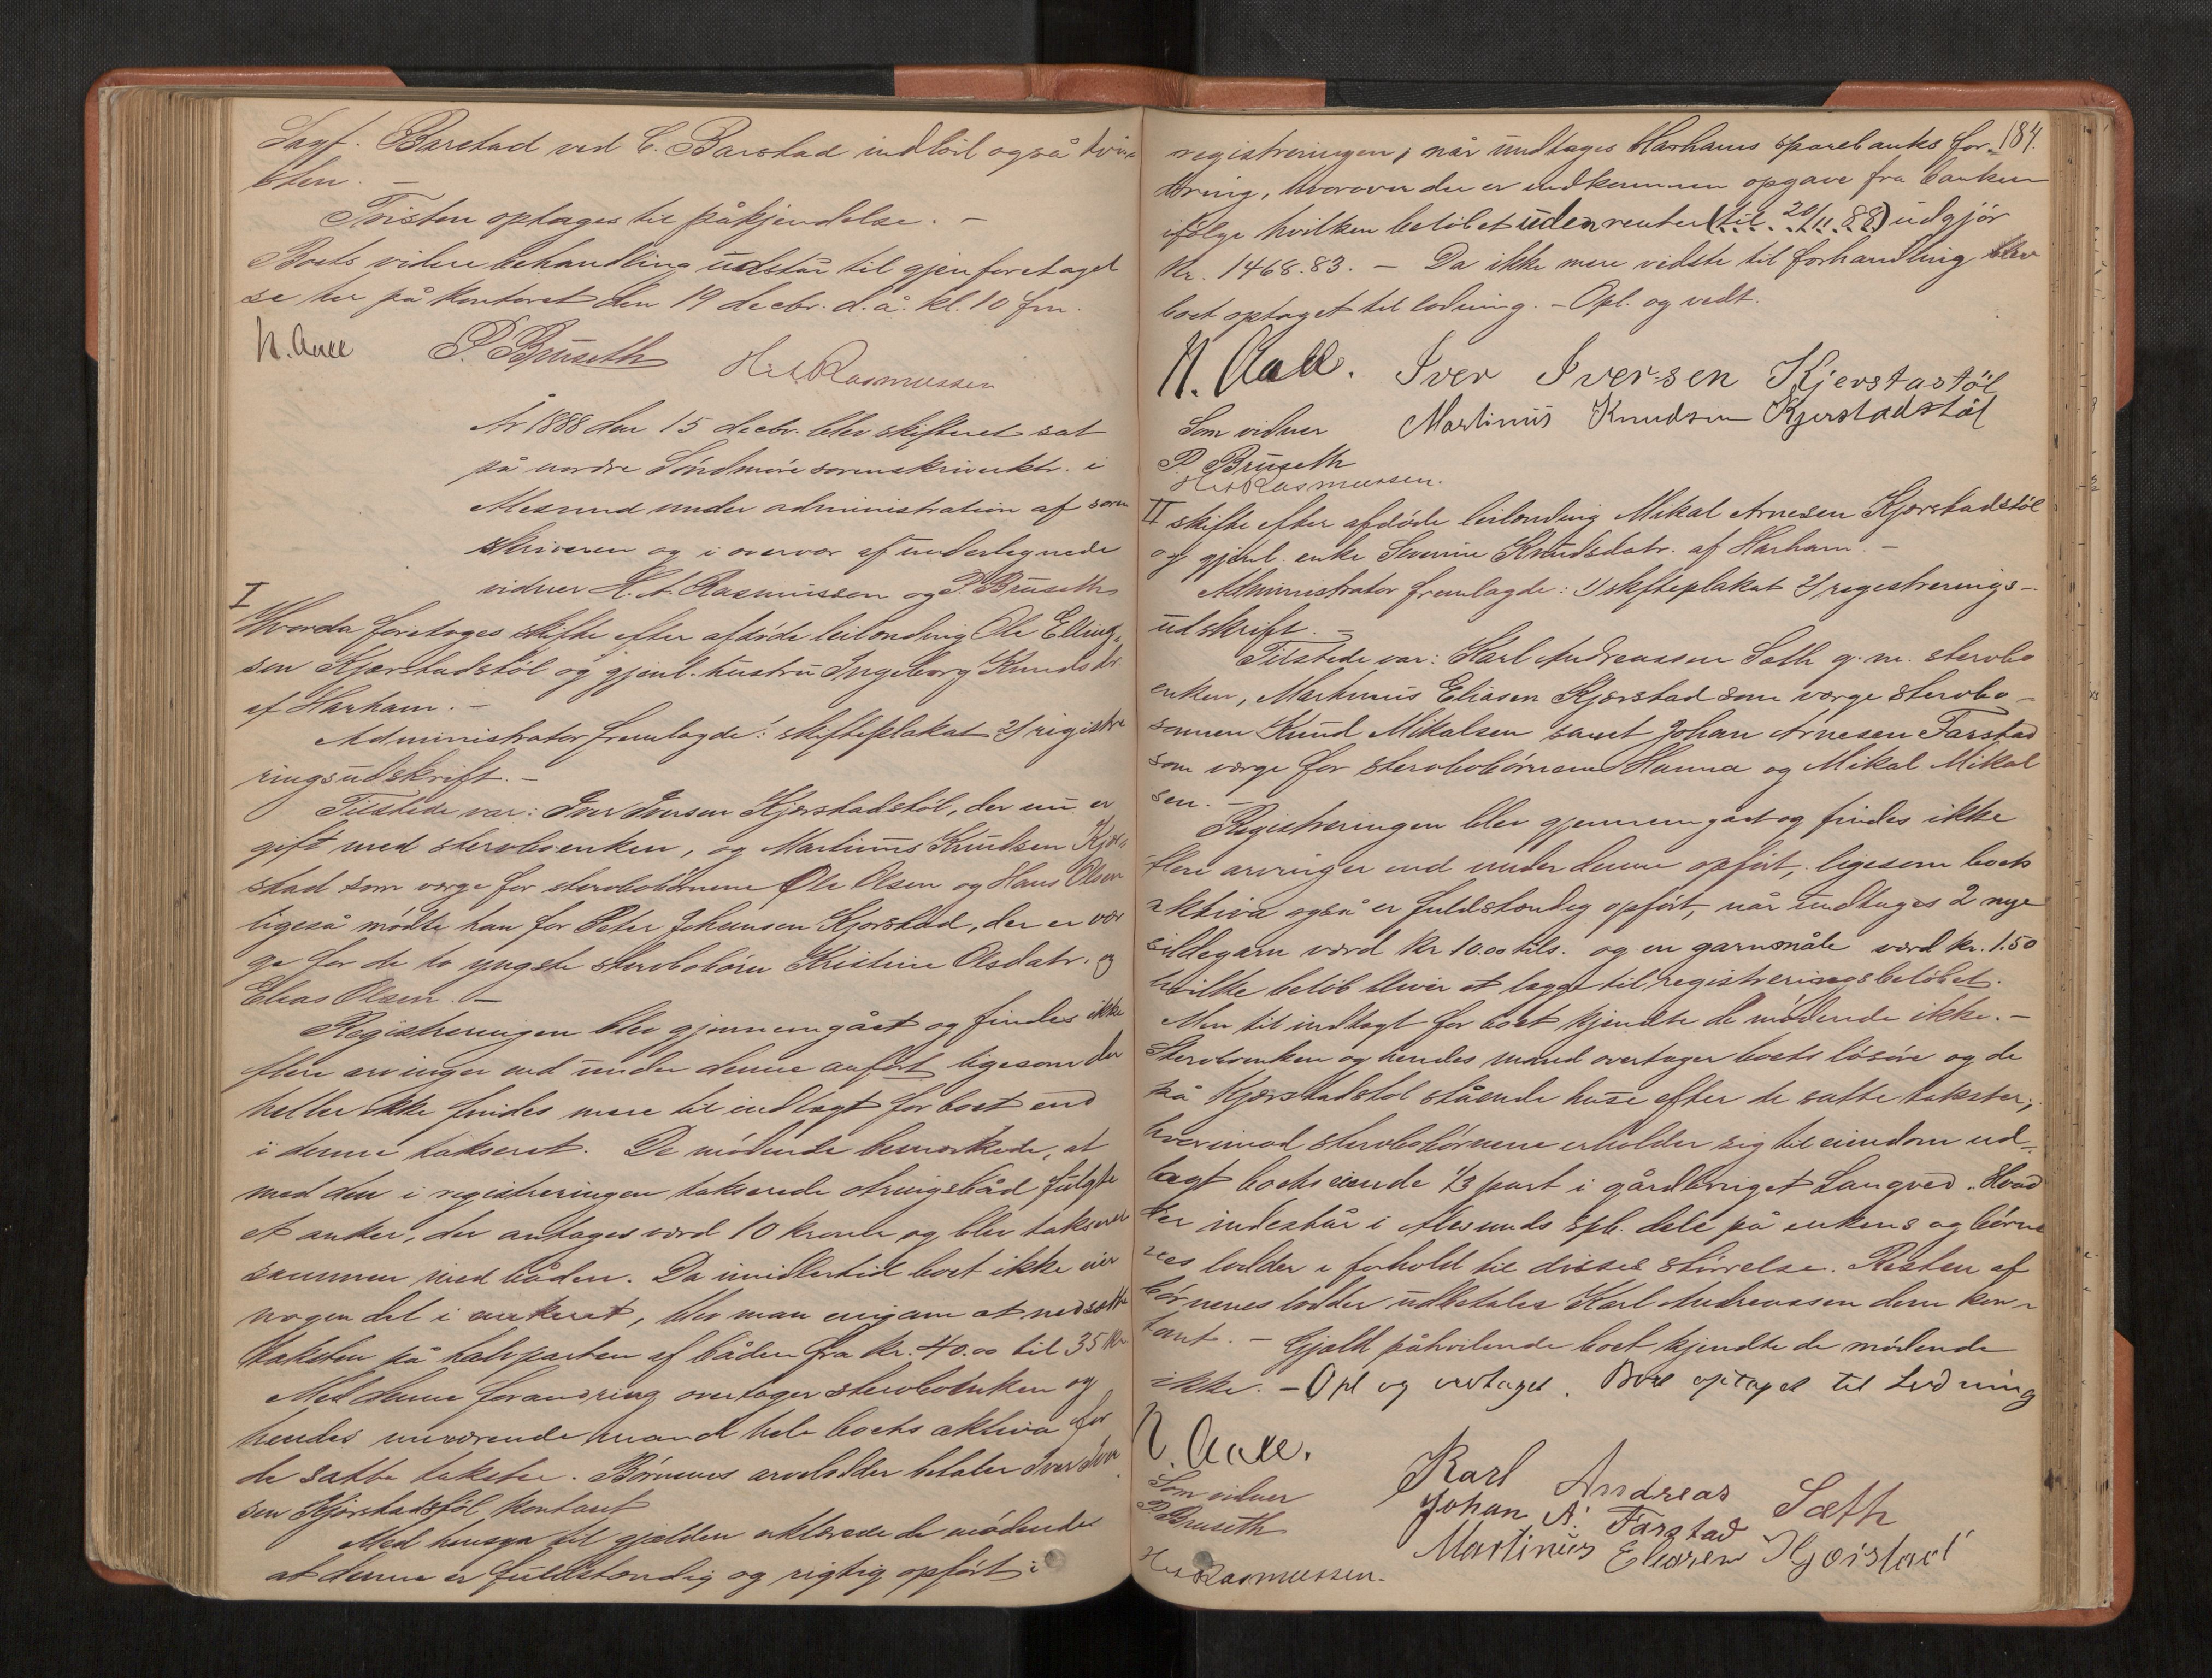 Sagf. Barstad ved C. Barstad indlod også tvi-
sten. —
Tvisten optages til påkjendelse. —
Boets videre behandling udstår til gjenforetagel
se her på kontoret den 19 decbr. d. å. kl. 10 fm.
N. Aall P. Bruseth H. A. Rasmussen
År 1888 den 15 decbr. blev skifteret sat
på nordre Söndmöre sorenskriverktr. i
Alesund under administration af soren
skriveren og i overvær af undertegnede
vidner H. A. Rasmussen og P. Bruseth
I
Hvorda foretoges skifte efter afdöde leilænding Ole Elling-
sen Kjærstadstöl og gjenl. hustru Ingeborg Knudsdr.
af Harham. —
Administrator fremlagde: skifteplakat 2/ registre
ringsudskrift. —
Tilstede var: Iver Iversen Kjærstadstöl, der nu er
gift med stervboenken, og Martinus Knudsen Kjær-
stad som værge for stervbobörnene Ole Olsen og Hans Olsen
ligeså mödte han for Peter Johansen Kjærstad, der er vær
ge for de to yngste stervbobörn Kristine Olsdatr. og
Elias Olsen. —
Registreringen blev gjennemgået og findes ikke
flere arvinger end under denne anfört ligesom der
heller ikke findes mere til indtægt for boet end
i denne takseret. De mödende bemærkede, at
med den i registreringen takserede otringsbåd fulgte
et anker, der antages værd 10 kroner og blev takseret
sammen med båden. Da imidlertid boet ikke eier
nogen del i ankeret, blev man enig om at nedsætte
taksten på halvparten af båden fra kr. 40.00 til 35 kr
Med denne forandring overtager stervboenken og
hendes nuværende mand hele boets aktiva for
de satte takster. Börnenes arvelodder betaler Iver Iver
sen Kjærstadstöl kontant
Med hensyn til gjælden erklærede de mödende
at denne er fuldstændig og rigtig opfört i
184.
registreringen, når undtages Harhams sparebanks for-
dring, hvorover der er indkommen opgave fra banken
ifölge hvilken belöbet uden renter (til 20/11 88) udgjör
Kr. 1468.83. — Da ikke mere vidste til forhandling blev
boet optaget til lodning. — Opl. og vedt.
N. Aall. Iver Iversen Kjerstastöl
Som vidner Martinus Knudsen Kjerstadstöl
P. Bruseth
H. A. Rasmussen.
II skifte efter afdöde leilænding Mikal Arnesen Kjærstadstöl
og gjenl. enke Severine Knudsdatr. af Harham. —
Administrator fremlagde: 1) skifteplakat 2/ registrerings-
udskrift. —
Tilstede var: Karl Andreassen Sæth g. m. stervbo
enken, Martinus Eliasen Kjærstad som værge stervbo-
sönnen Knud Mikalsen samt Johan Arnesen Farstad
som værge for stervbobörnene Hanna og Mikal Mikal
sen. —
Registreringen blev gjennemgået og findes ikke
flere arvinger end under denne opfört, ligesom boets
aktiva også er fuldstændig opfört, når undtages 2 nye
sildegarn værd kr 10.00 tils. og en garnsnåle værd kr. 1.50
hvilke belöb bliver at lægge til registreringsbelöbet.
Mere til indtægt for boet kjendte de mödende ikke. —
Stervboenken og hendes mand overtager boets lösöre og de
på Kjærstadstöl stående huse efter de satte takster;
hvorimod stervbobörnene erholder sig til eiendom ud-
lagt boets eiende 1/3 part i gårdbruget Langved. Hvad
der indestår i Alesunds spb. dele på enkens og börne
nes lodder i forhold til disses störrelse. Resten af
börnenes lodder udbetales Karl Andreassen dem kon-
tant. — Gjæld påhvilende boet kjendte de mödende
ikke. — Opl og vedtaget. Boet optaget til Lodning
N. Aall. Karl Andreas Sæth
Som vidner Johan A. Farstad
P Bruseth Martinus Eliasen Kjærstad
H. A. Rasmussen.